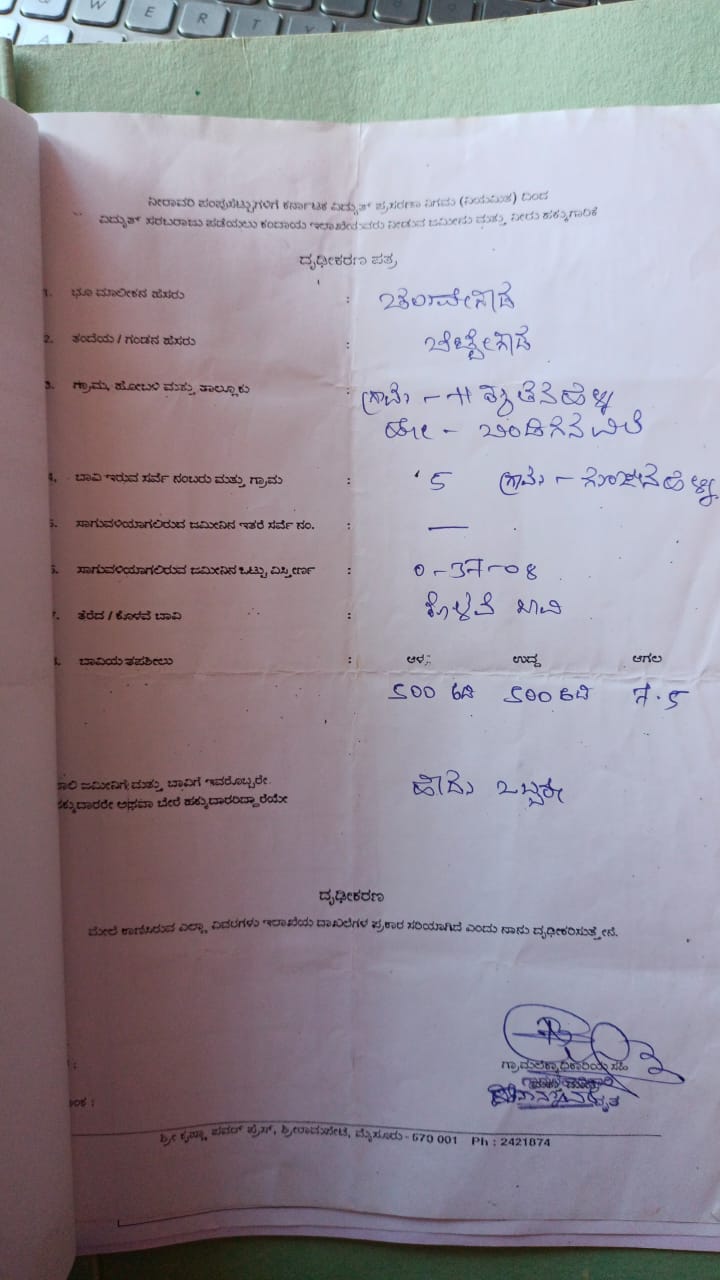 ನೀರಾವರಿ ಪಂಪುಸೆಟ್ಟುಗಳಿಗೆ ಕರ್ನಾಟಕ ವಿದ್ಯುತ್ ಪ್ರಸರಣಾ ನಿಗಮ (ನಿಯಮಿತ) ದಿಂದ
ವಿದ್ಯುತ್ ಸರಬರಾಜು ಪಡೆಯಲು ಕಂದಾಯ ಇಲಾಖೆಯವರು ನೀಡುವ ಜಮೀನು ಮತ್ತು ನೀರು ಹಕ್ಕುಗಾರಿಕೆ
ದೃಢೀಕರಣ ಪತ್ರ
1. ಭೂ ಮಾಲೀಕನ ಹೆಸರು : ಚಲುವೇಗೌಡ
2. ತಂದೆಯ / ಗಂಡನ ಹೆಸರು : ಬೆಟ್ಟೇಗೌಡ
3. ಗ್ರಾಮ, ಹೋಬಳಿ ಮತ್ತು ತಾಲ್ಲೂಕು : ಗ್ರಾಮ -
ಹೋ - ಬಿಂಡಿಗನವಿಲೆ
4. ಬಾವಿ ಇರುವ ಸರ್ವೆ ನಂಬರು ಮತ್ತು ಗ್ರಾಮ : 5 ಗ್ರಾಮ -
5. ಸಾಗುವಳಿಯಾಗಲಿರುವ ಜಮೀನಿನ ಇತರೆ ಸರ್ವೆ ನಂ. : —
6. ಸಾಗುವಳಿಯಾಗಲಿರುವ ಜಮೀನಿನ ಒಟ್ಟು ವಿಸ್ತೀರ್ಣ : 0-37-04
7. ತೆರೆದ / ಕೊಳವೆ ಬಾವಿ : ಕೊಳವೆ ಬಾವಿ
ಬಾವಿಯ ತಪಶೀಲು : ಆಳ ಉದ್ದ ಅಗಲ
500 ಅಡಿ 500 ಅಡಿ 7.5
ಜಮೀನಿಗೆ ಮತ್ತು ಬಾವಿಗೆ ಇವರೊಬ್ಬರೇ
ಹಕ್ಕುದಾರರೇ ಅಥವಾ ಬೇರೆ ಹಕ್ಕುದಾರರಿದ್ದಾರೆಯೇ ಹೌದು ಒಬ್ಬರೇ
ದೃಢೀಕರಣ
ಮೇಲೆ ಕಾಣಿಸಿರುವ ಎಲ್ಲಾ ವಿವರಗಳು ಇಲಾಖೆಯ ದಾಖಲೆಗಳ ಪ್ರಕಾರ ಸರಿಯಾಗಿದೆ ಎಂದು ನಾನು ದೃಢೀಕರಿಸುತ್ತೇನೆ.
ಗ್ರಾಮಲೆಕ್ಕಾಧಿಕಾರಿಯ ಸಹಿ
ಶ್ರೀ ಕೃಷ್ಣಾ ಪವರ್ ಪ್ರೆಸ್, ಶ್ರೀರಾಮಪೇಟೆ, ಮೈಸೂರು - 570 001 Ph : 2421874